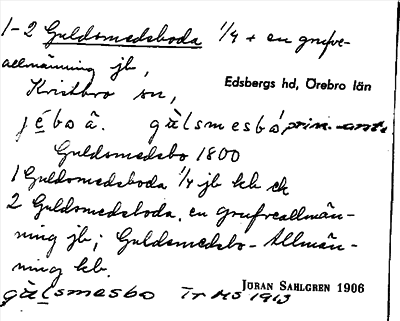 1-2 Guldsmedsboda 1/4 + en grufve-
allmänning jb,
Edsbergs hd, Örebro län
Kristbro sn,
jébo ä. gùlsmesbó prim.
Guldsmedsbo 1800
1 Guldsmedsboda 1/4 jb kb ek
2 Guldsmedsboda, en grufveallmän-
ning jb; Guldsmedsbo-Allmän-
ning kb.
JÖRAN SAHLGREN 1906
gùlsmesbo Tr MS 1913